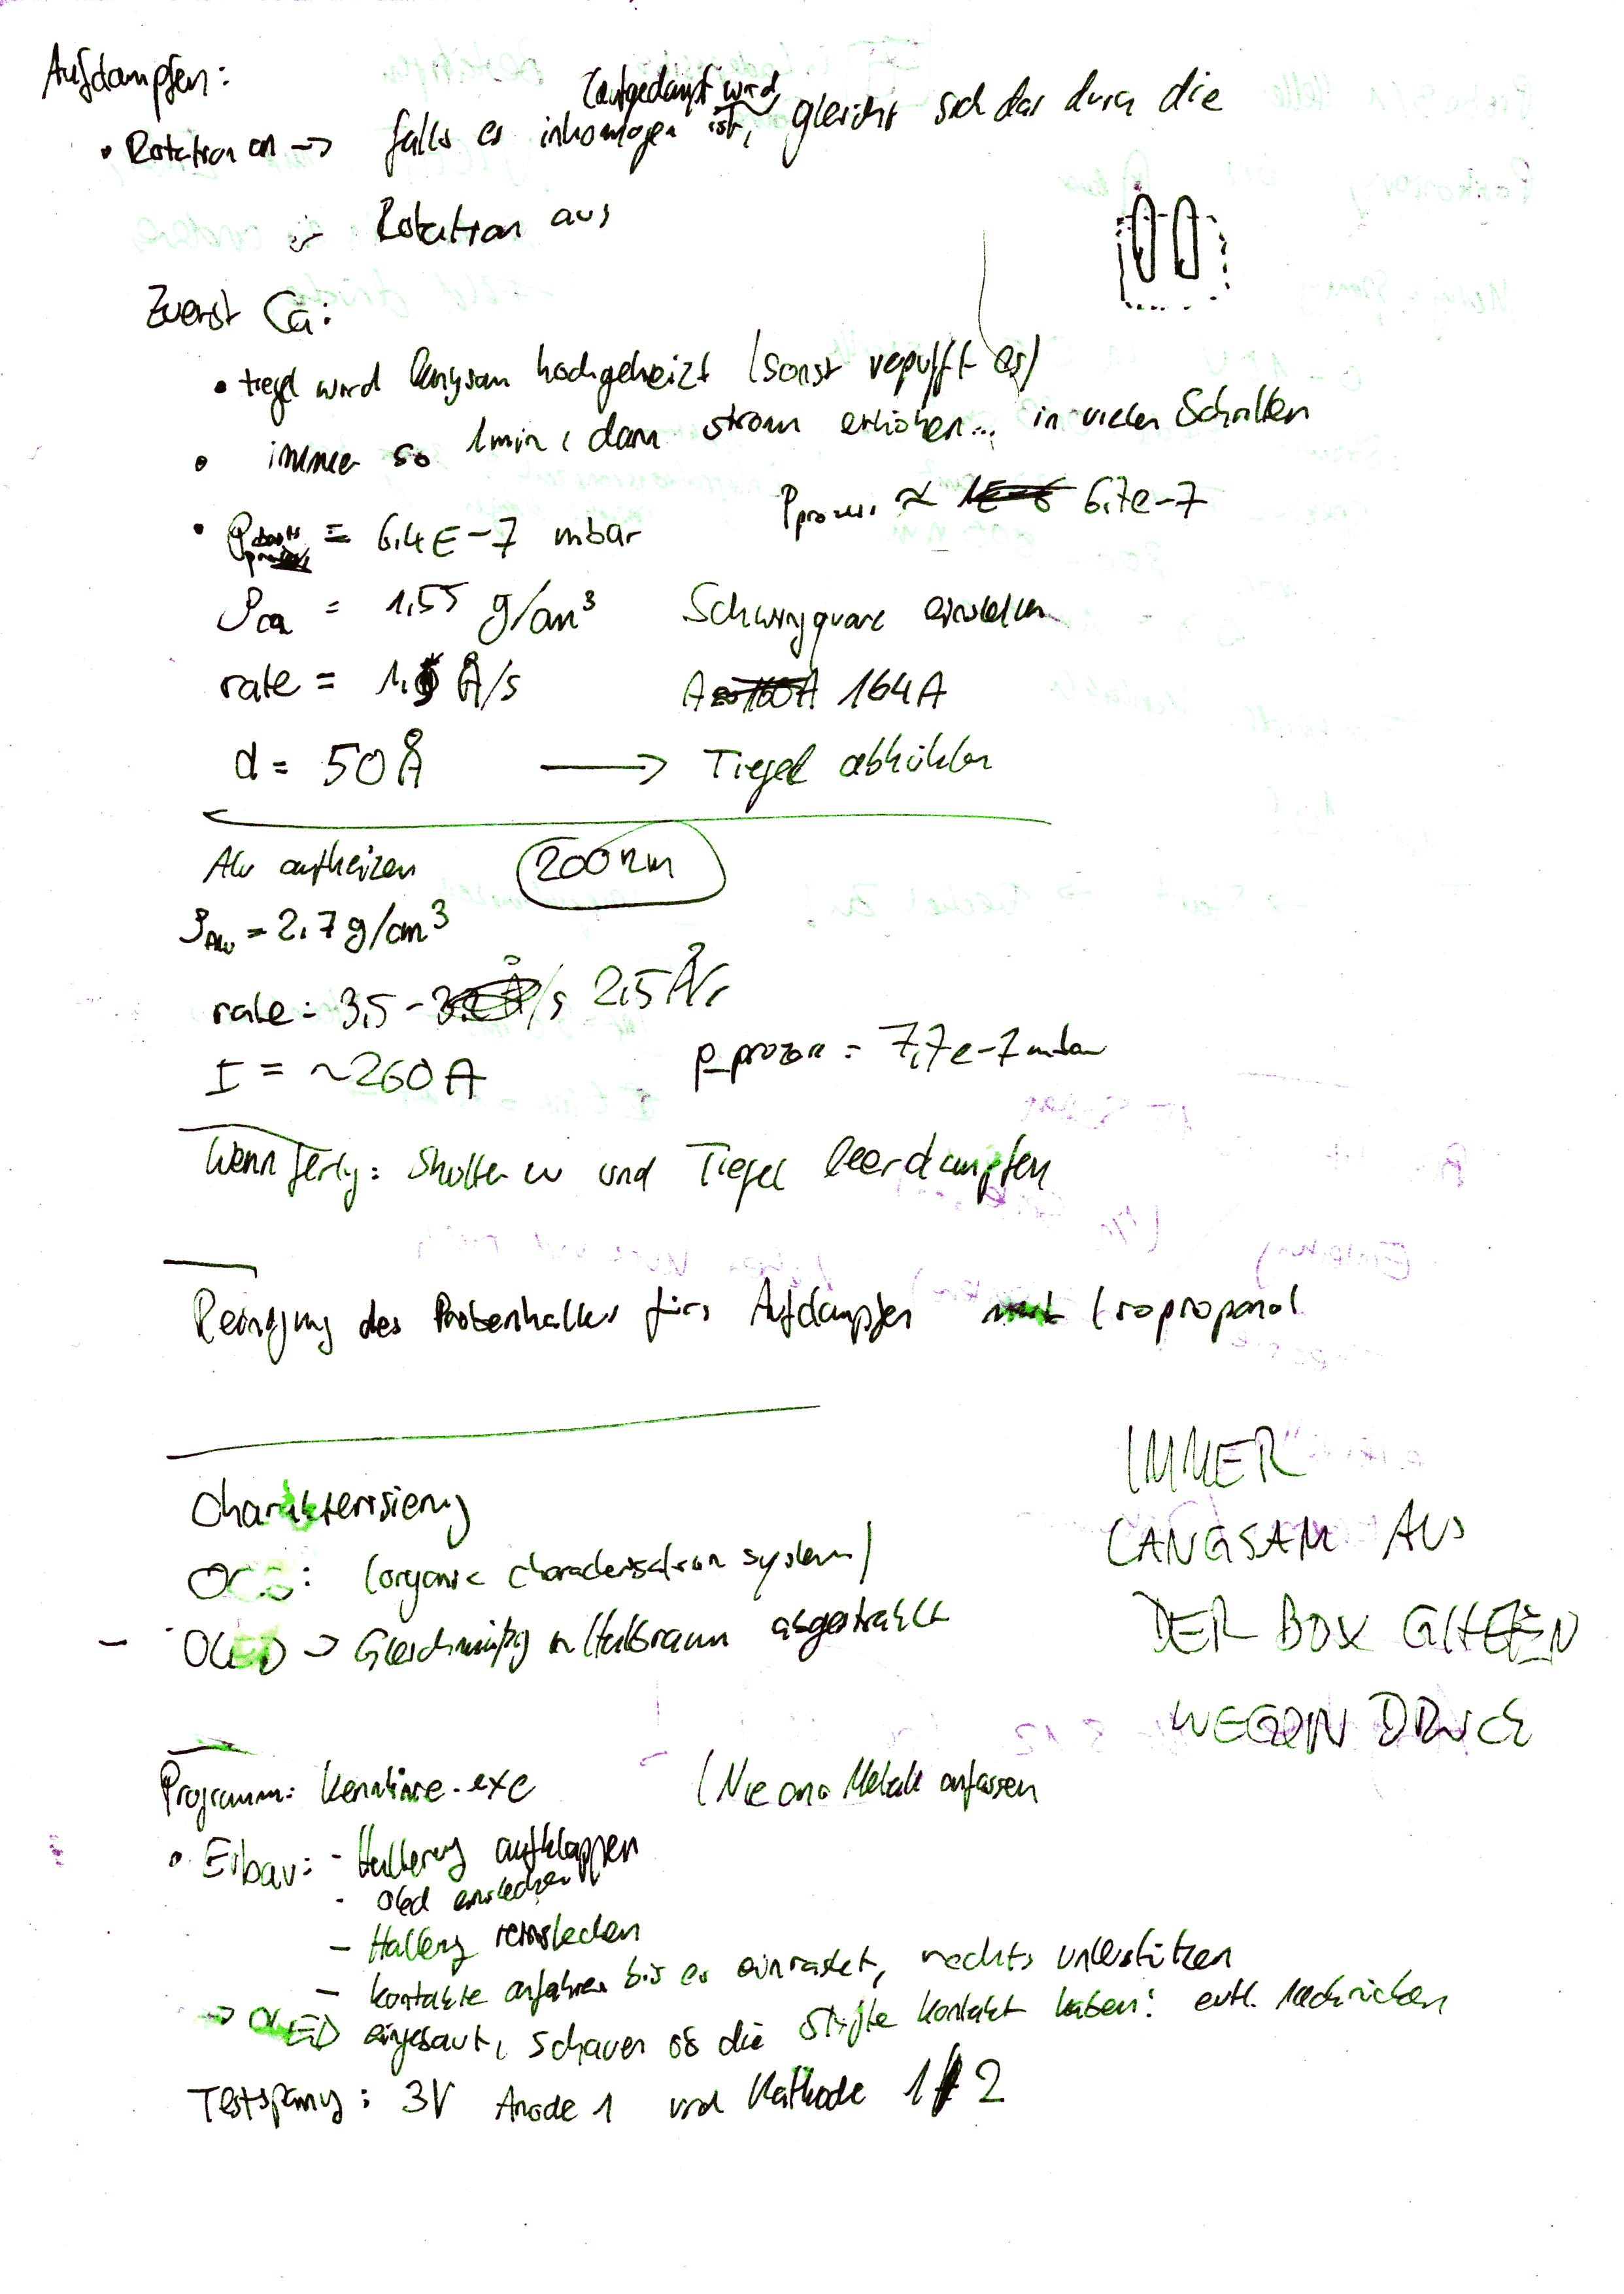 Aufdampfen:
(aufgedampft wird)
• Rotation an -> falls es inhomogen ist, gleicht sich das durch die
Rotation aus
Zuerst Ca:
• tiegel wird langsam hochgeheizt (sonst verpufft es)
• immer so 1min, dann strom erhöhen... in vielen Schritten
• P = 6,4E-7 mbar P prozess ≈ 6,7e-7
ρCa = 1,55 g/cm³ Schwingquarz einstellen
rate = 1. Å/s 164A
d = 50Å -> Tiegel abkühlen
Alu aufheizen 200nm
ρAlu = 2.7g/cm³
rate: 3,5 - /s 2,5Å/s
I = ~260A p_prozess = 7,7e-7mbar
Wenn fertig: Shutter zu und Tiegel leerdampfen
Reinigung des Probenhalters fürs Aufdampfen mit Isopropanol
IMMER
LANGSAM AUS
DER BOX GEHEN
WEGEN DRUCK
Charakterisierung
OCS: (organic characterisation system)
- OLED -> Gleichmäßig in Halbraum abgestrahlt
Programm: Kennlinie.exe (Nie ans Metall anfassen
• Eibau: - Halterung aufklappen
- Oled einstecken
- Halterung reinstecken
- Kontakte anfahren bis es einrastet, rechts unterstützen
-> OLED eingebaut, schauen ob die Stifte Kontakt haben! evtl. Nachrücken
Testspannung: 3V Anode 1 und Kathode 1/2